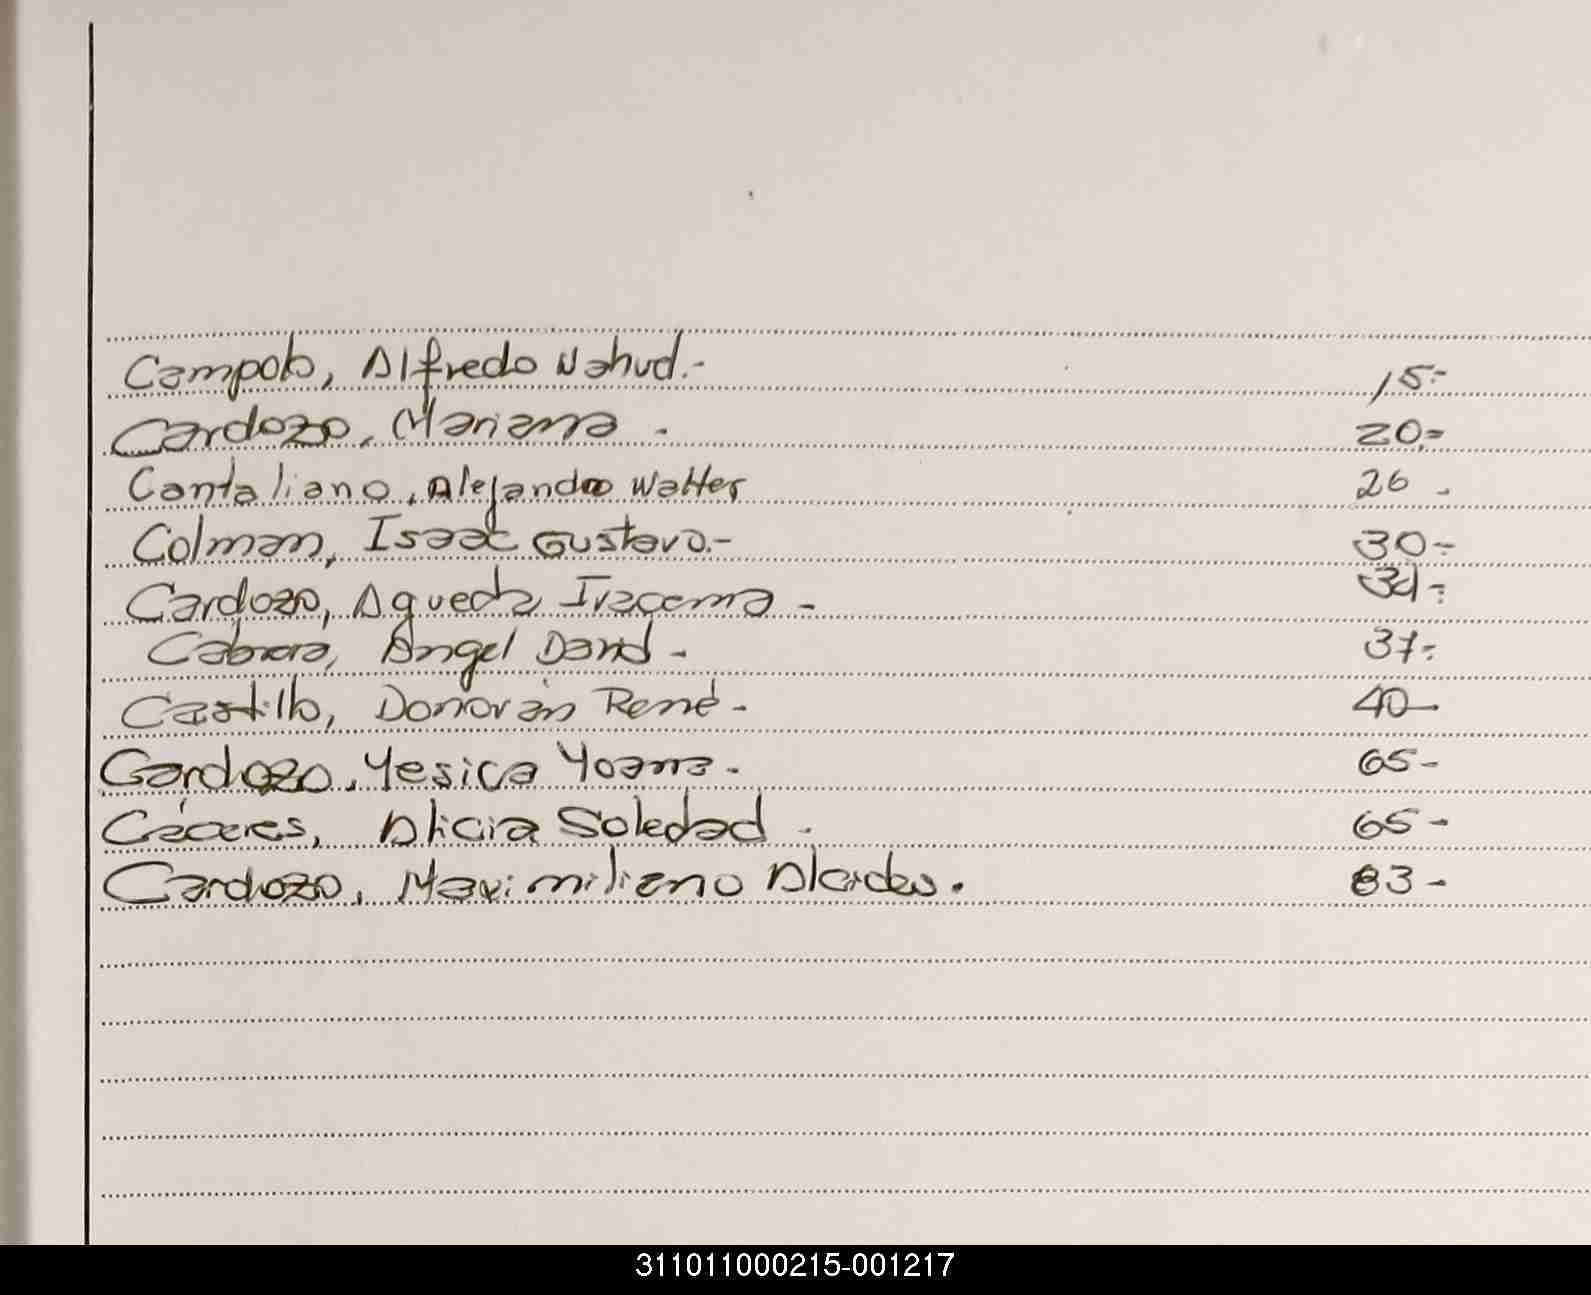 Campolo, Alfredo Nahud.- 15.-
Cardozo, Mariana. 20.-
Cantaliano, Alejandro Walter 26.
Colman, Isaac Gustavo.- 30-
Cardozo, Agueda Iracema - 34-
Cabrera, Angel David - 37-
Castillo, Donovan René - 40-
Cardozo, Yesica Yoana. 65-
Cáceres, Alicia Soledad. 65-
Cardozo, Maximiliano Alcides. 83-
311011000215-001217